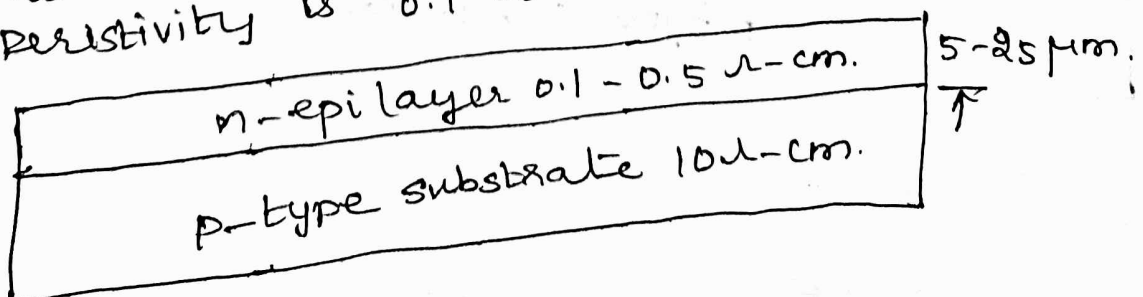 peristivity is 0.1
n-epi layer 0.1 - 0.5 Ω-cm.
5-25 μm.
p-type substrate 10Ω-cm.